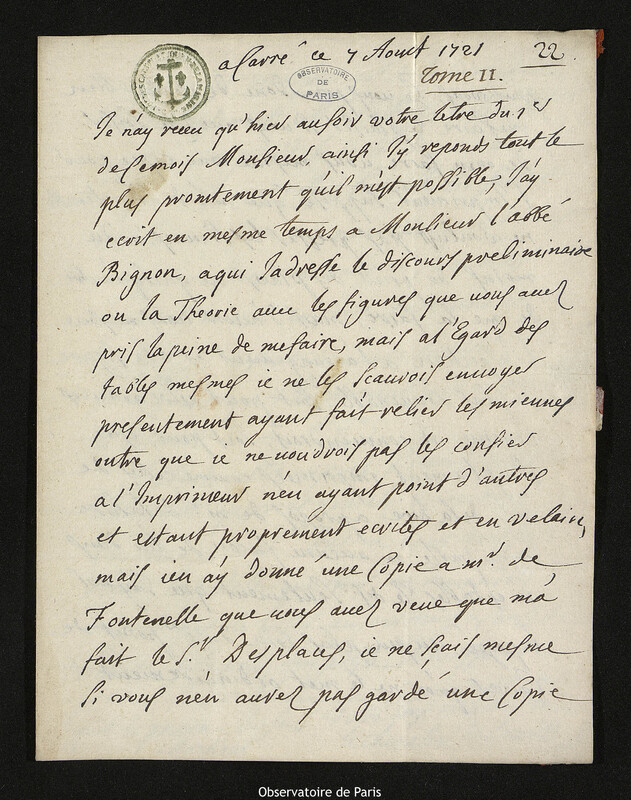 a Carré ce 7 Aoust 1721
22
OBSERVATOIRE
DE
PARIS
Tome II.
Je nay receu qu'hier au soir votre letre du 1er
de ce mois Monsieur, ainsi J'y reponds tout le
plus promtement qu'il m'est possible, J'ay
ecrit en mesme temps a Monsieur l'abbé
Bignon, a qui J'adresse le discours preliminaire
ou la Theorie avec les figures que vous avez
pris la peine de me faire, mais a l'Egard des
tables mesmes ie ne les scaurois envoyer
presentement ayant fait relier les miennes
outre que ie ne voudrois pas les confier
a l'Imprimeur n'en ayant point d'autres
et estant proprement ecrites et en velain,
mais i'en ay donné une Copie a mr. de
Fontenelle que vous avez veue que m'a
fait le Sr. Desplaces, ie ne scais mesme
si vous n'en aurez pas gardé une Copie
Observatoire de Paris